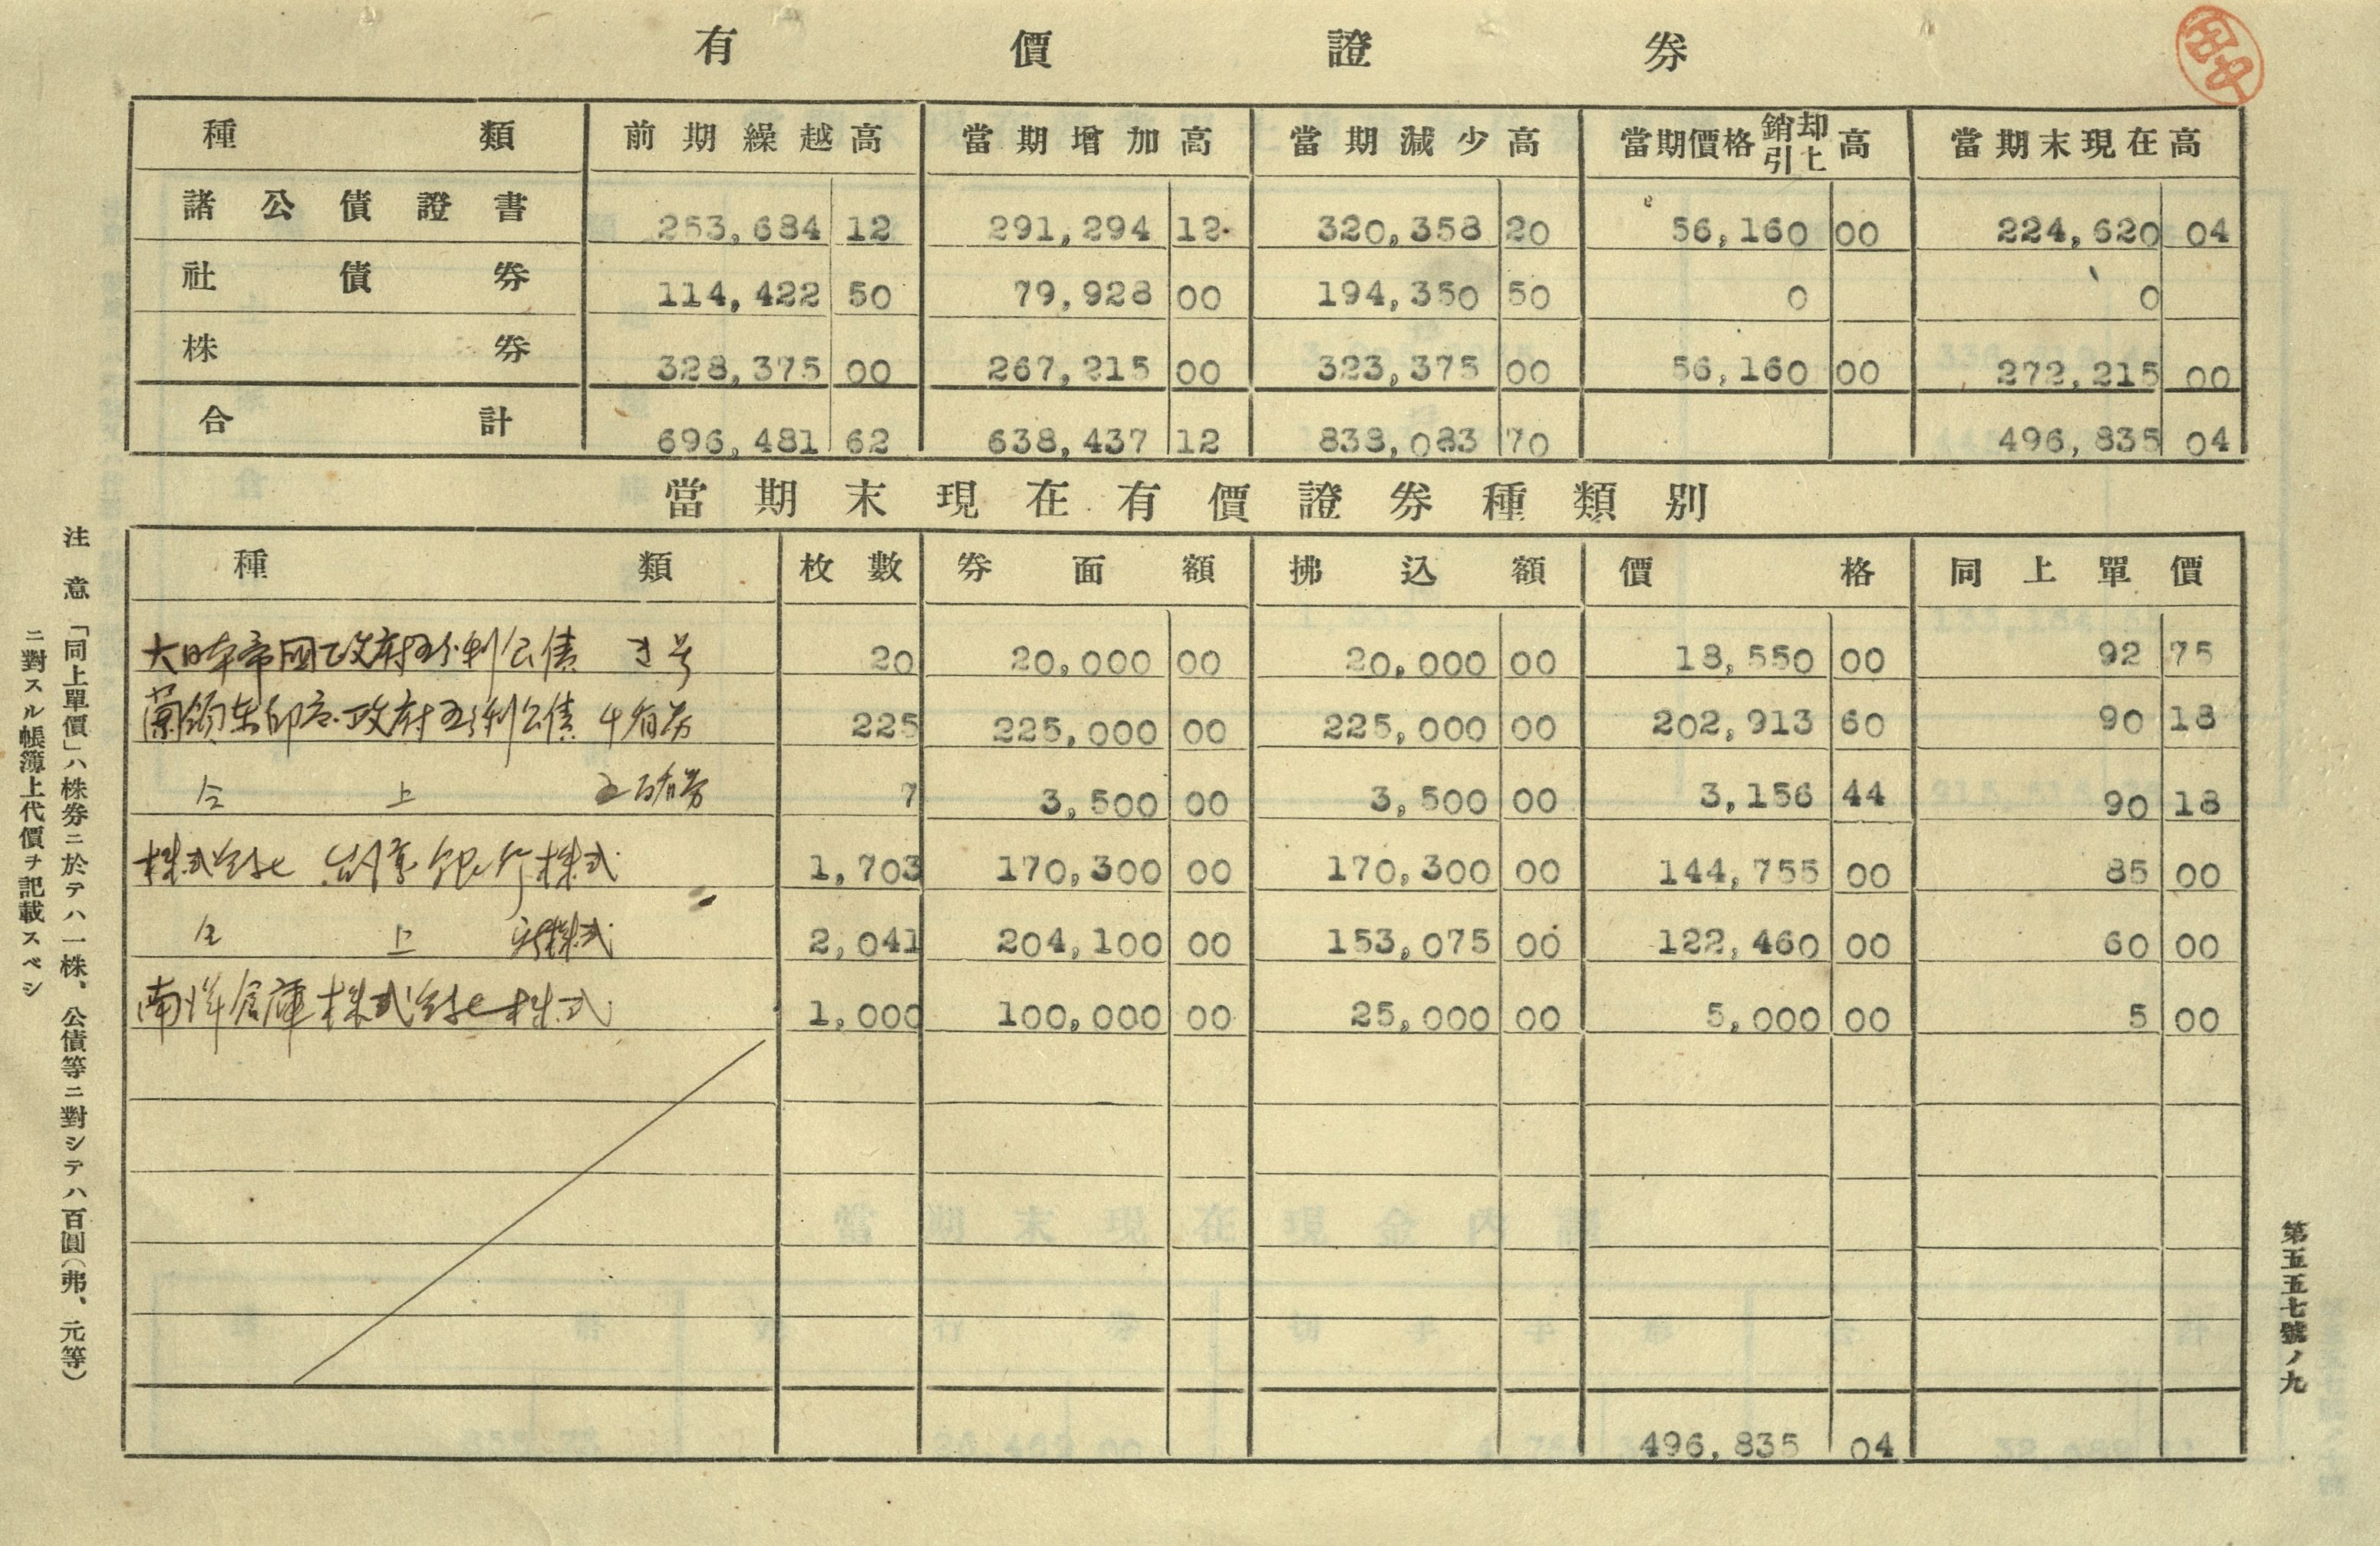 有價證券
種類 前期繰越高 當期增加高 當期減少高 當期價格銷却引上高 當期末現在高
諸公債證書 253,684 12 291,294 12 320,358 20 56,160 00 224,620 04
社債券 114,422 50 79,928 00 194,350 50 0 0
株券 328,375 00 267,215 00 323,375 00 56,160 00 272,215 00
合計 696,481 62 638,437 12 838,083 70 496,835 04
當期末現在有價證券種類別
種類 枚數 券面額 拂込額 價格 同上單價
大日本帝國政府五分利公債 き号 20 20,000 00 20,000 00 18,550 00 92 75
蘭領東印度政府五分利公債 千盾券 225 225,000 00 225,000 00 202,913 60 90 18
仝上 五百盾券 7 3,500 00 3,500 00 3,156 44 90 18
株式会社 台湾銀行株式 1,703 170,300 00 170,300 00 144,755 00 85 00
仝上 新株式 2,041 204,100 00 153,075 00 122,460 00 60 00
南洋倉庫株式会社株式 1,000 100,000 00 25,000 00 5,000 00 5 00
496,835 04
注意「同上單價」ハ株券ニ於テハ一株、公債等ニ對シテハ百圓（弗、元等）
ニ對スル帳簿上代價ヲ記載スベシ
第五五七號ノ九